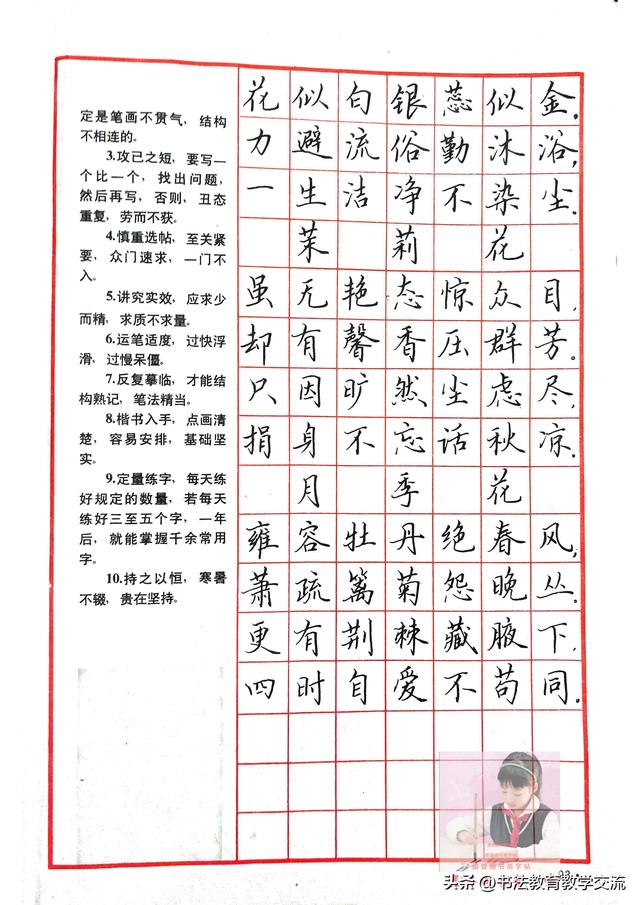 定是笔画不贯气，结构
不相连的。
3.攻己之短，要写一
个比一个，找出问题，
然后再写，否则，丑态
重复，劳而不获。
4.慎重选帖，至关紧
要，众门速求，一门不
入。
5.讲究实效，应求少
而精，求质不求量。
6.运笔适度，过快浮
滑，过慢呆僵。
7.反复摹临，才能结
构熟记，笔法精当。
8.楷书入手，点画清
楚，容易安排，基础坚
实。
9.定量练字，每天练
好规定的数量，若每天
练好三至五个字，一年
后，就能掌握千余常用
字。
10.持之以恒，寒暑
不辍，贵在坚持。
花似白银蕊似金。
力避流俗勤沐浴，
一生洁净不染尘。
茉莉花
虽无艳态惊众目，
却有馨香压群芳。
只因旷然尘虑尽，
捐身不忘话秋凉。
月季花
雍容牡丹绝春风，
萧疏篱菊怨晚丛。
更有荆棘藏腋下，
四时自爱不苟同。
33
头条 @书法教育教学交流